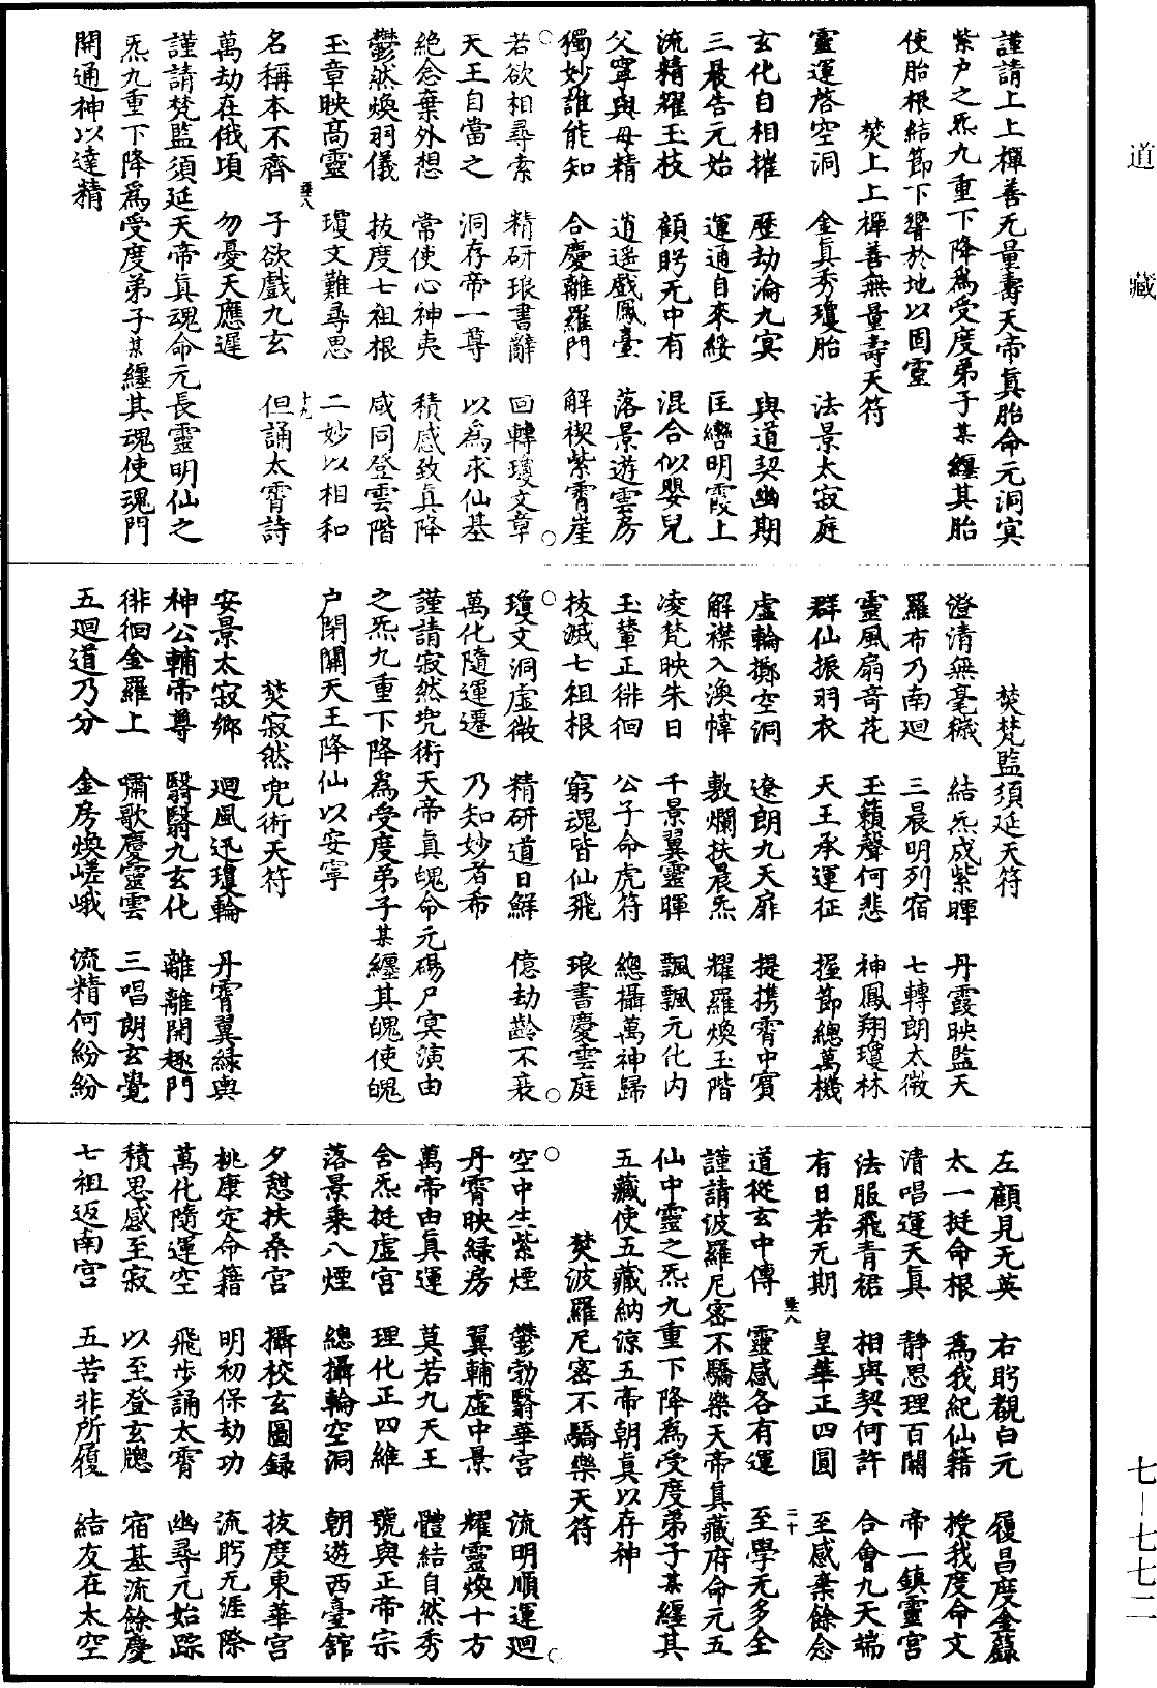 道藏
謹請上上禪善无量壽天帝眞胎命元洞冥
紫户之炁九重下降爲受度弟子某纏其胎
使胎根結節下響於地以固靈
焚上上禪善無量壽天符
靈運啓空洞　金真秀瓊胎　法景太寂庭
玄化自相摧　歷劫淪九冥　與道契幽期
三晨告元始　運通自來綏　匡轡明霞上
流精耀玉枝　顧眄无中有　混合似嬰兒
父寧與母精　逍遥戲鳳臺　落景遊雲房
獨妙誰能知　合慶離羅門　解禊紫霄崖
若欲相尋索　精研琅書辭　回轉瓊文章
天王自當之　洞存帝一尊　以爲求仙基
絶念棄外想　常使心神夷　積感致真降
鬱然煥羽儀　拔度七祖根　咸同登雲階
玉章映高靈　瓊文難尋思　二妙以相和
名稱本不齊　子欲戲九玄　但誦太霄詩
萬劫在俄頃　勿憂天應遲
謹請梵監須延天帝眞魂命元長靈明仙之
炁九重下降爲受度弟子某纏其魂使魂門
開通神以達精
焚梵監須延天符
澄清無毫穢　結炁成紫暉　丹霞映監天
羅布乃南廻　三晨明列宿　七轉朗太微
靈風扇奇花　玉籟聲何悲　神鳳翔瓊林
群仙振羽衣　天王承運征　握節總萬機
虚輪擲空洞　遼朗九天扉　提携霄中賓
解襟入渙幃　敷爛扶晨炁　耀羅煥玉階
凌梵映朱日　千景翼靈暉　飄飄元化内
玉輦正徘徊　公子命虎符　總攝萬神歸
拔滅七祖根　窮魂皆仙飛　琅書慶雲庭
瓊文洞虚微　精研道日鮮　億劫齡不衰
萬化隨運遷　乃知妙者希
謹請寂然兜術天帝眞魄命元碭尸冥演由
之炁九重下降爲受度弟子某纏其魄使魄
户閉關天王降仙以安寧
焚寂然兜術天符
安景太寂鄉　廻風迅瓊輪　丹霄翼緑輿
神公輔帝尊　翳翳九玄化　離離開趣門
徘徊金羅上　嘯歌慶靈雲　三唱朗玄覺
五廻道乃分　金房煥嵯峨　流精何紛紛
左顧見无英　右眄觀白元　履昌度金籙
太一挺命根　爲我紀仙籍　授我度命文
清唱運天真　静思理百關　帝一鎮靈宫
法服飛青裙　相與契何許　合會九天端
有日若无期　皇華正四圓　至感棄餘念
道從玄中傳　靈感各有運　至學无多全
謹請波羅尼密不驕樂天帝真藏府命元五
仙中靈之炁九重下降爲受度弟子某纏其
五藏使五藏納涼五帝朝真以存神
焚波羅尼密不驕樂天符
空中生紫煙　鬱勃翳華宫　流明順運廻
丹霄映緑房　翼輔虚中景　耀靈煥十方
萬帝由真運　莫若九天王　體結自然秀
含炁挺虚宫　理化正四維　號與正帝宗
落景乘八煙　總攝輪空洞　朝遊西臺館
夕憩扶桑宫　攝校玄圖録　拔度東華宫
桃康定命籍　明初保劫功　流眄无涯際
萬化隨運空　飛步誦太霄　幽尋元始蹤
積思感至寂　以至登玄牕　宿基流餘慶
七祖返南宫　五苦非所履　結友在太空
七—七七二